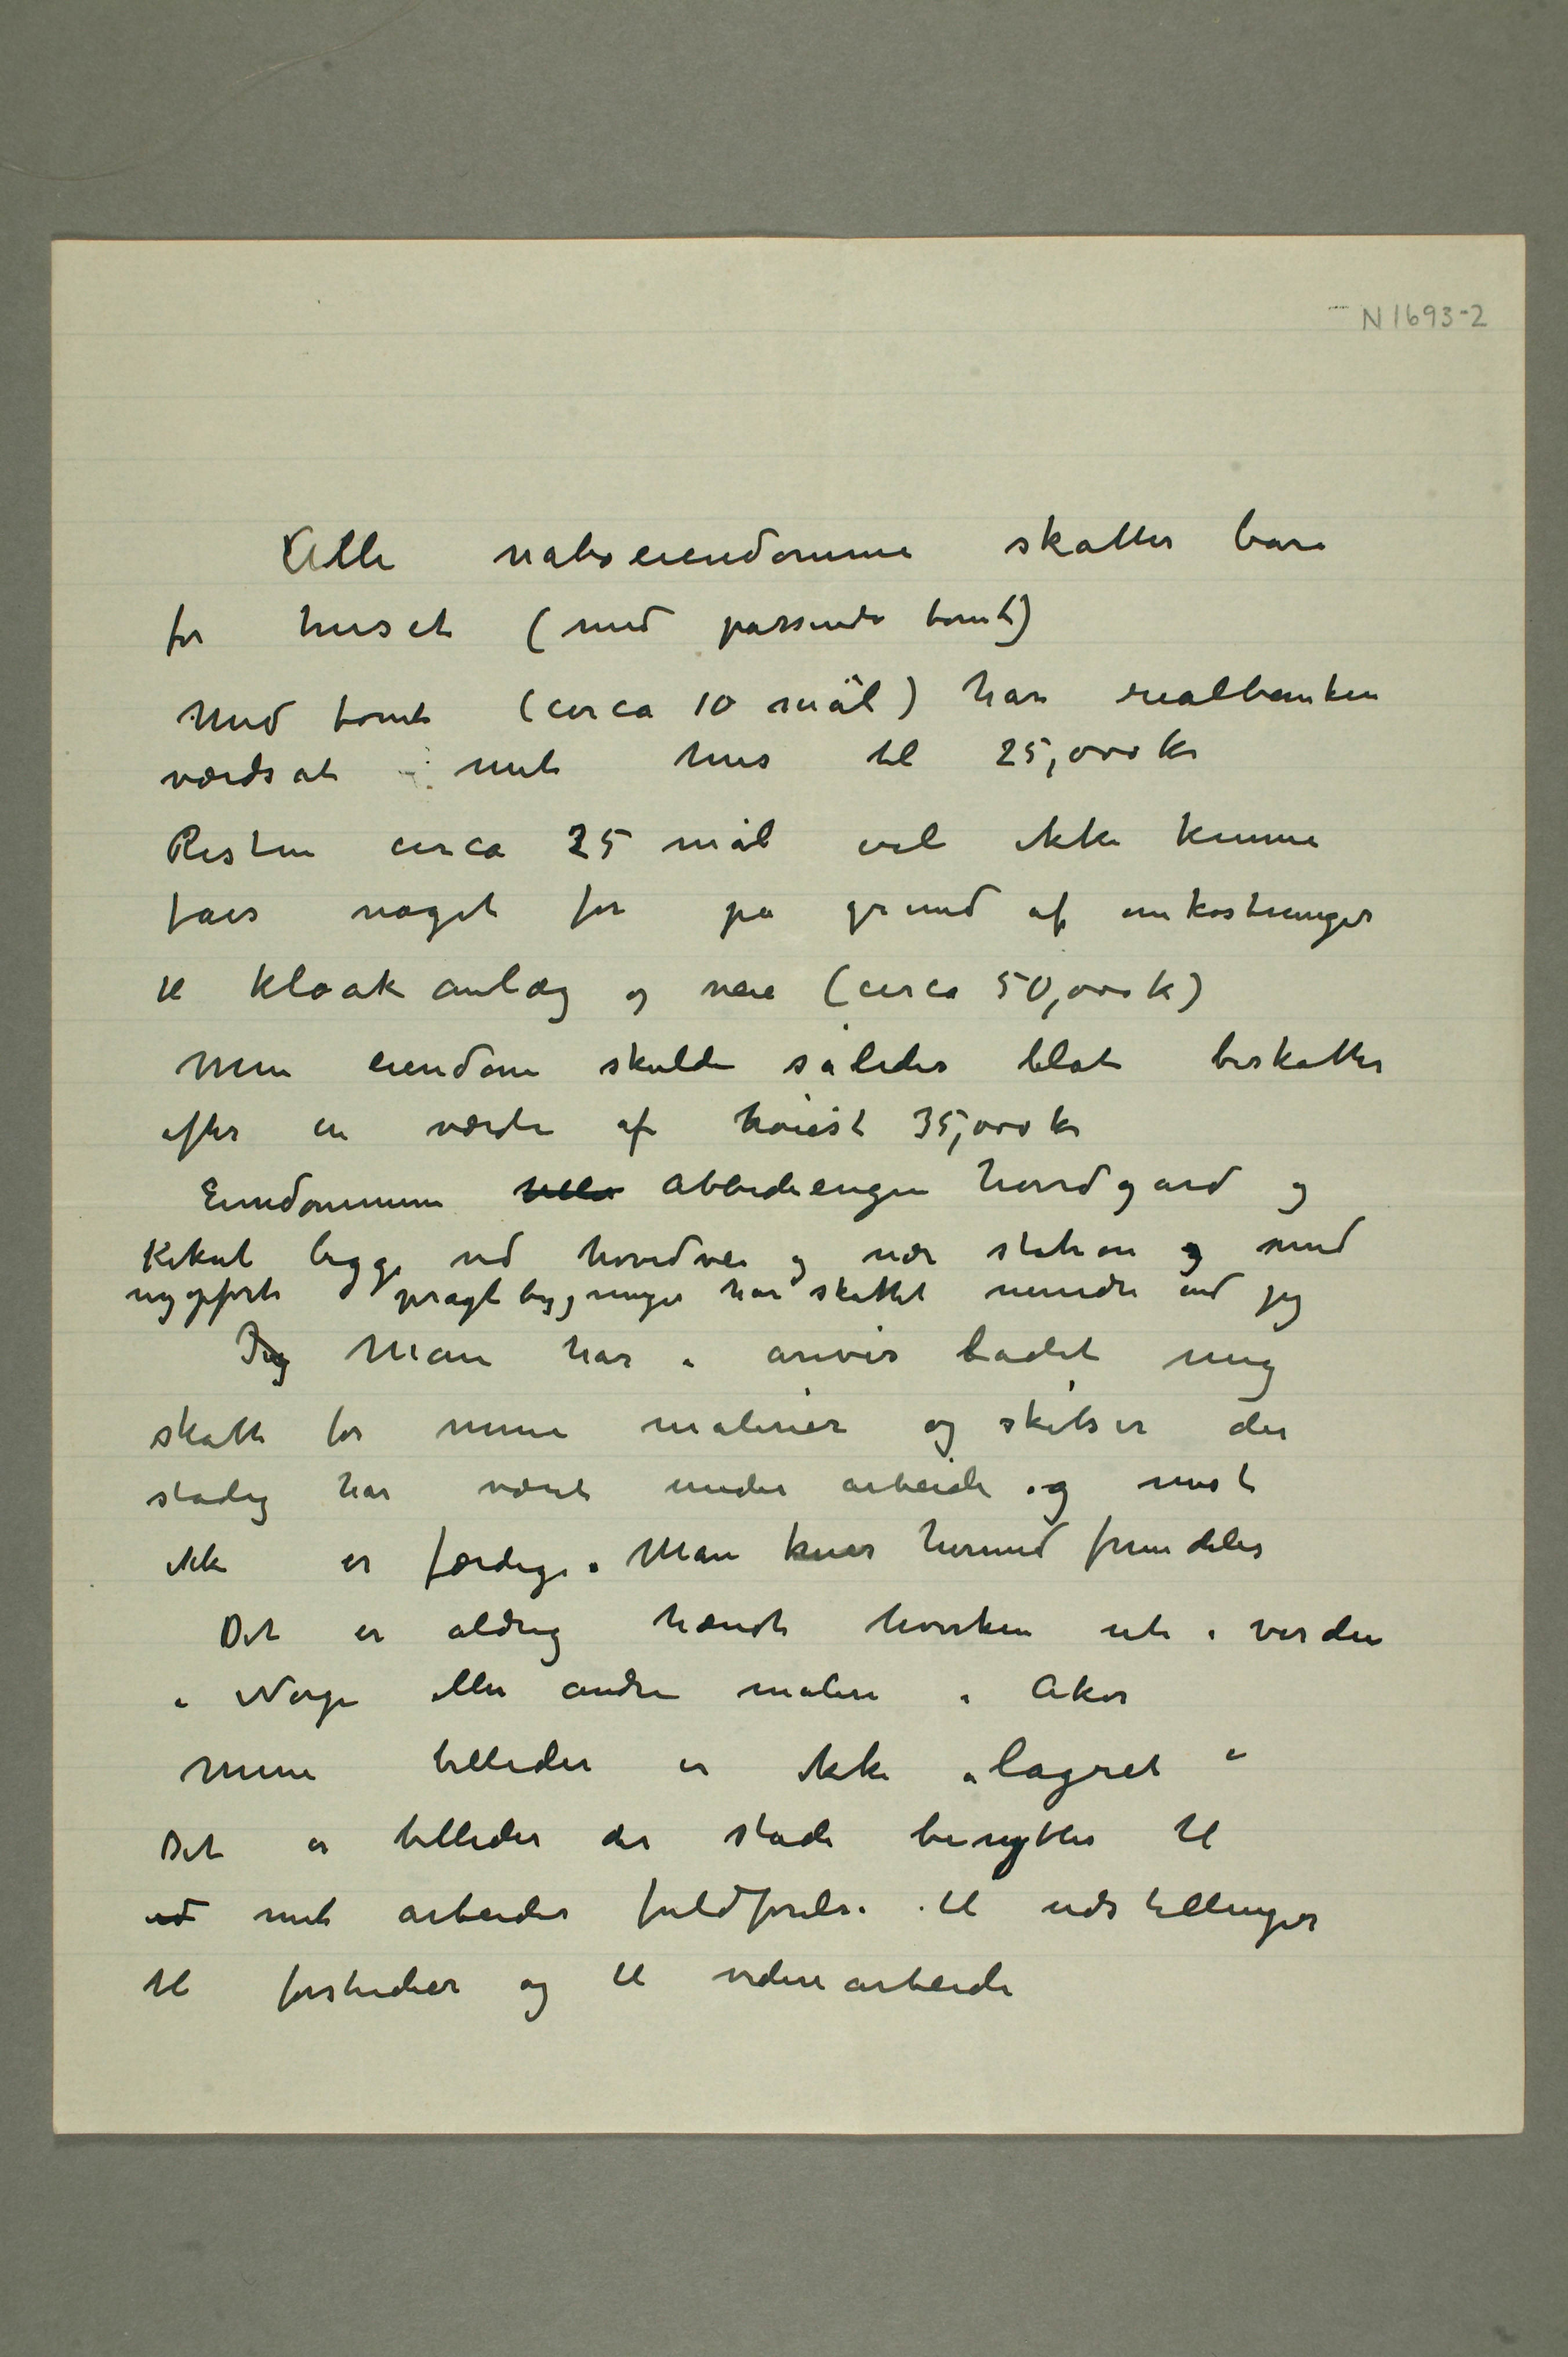 N 1693-2
Alle naboeiendomme skatter bare
for huset (med passende tomt)
Med tomt (circa 10 mål) har realbanken
værdsat mit hus til 25,000 kr
Resten circa 25 mål vil ikke kunne
faes noget for på grund af omkostninger
til kloakanlæg og veie (circa 50,000 k)
Min eiendom skulde således blot beskattes
efter en værdi af høiest 35,000 kr
Eiendommene Abbediengen hovedgard og
Kikut begge ved hovedvei og nær station og med
nyopførte pragtbygninger har skattet mindre end jeg
Jeg Man har i årevis ladet mig
skatte for mine malerier og skitser der
stadig har været under arbeide og mest
ikke er færdige. Man knær hermed fremdeles
Det er aldrig hændt hverken ute i verden
i Norge eller andre malere i Aker
Mine billeder er ikke „lagret“
Det er billeder der stadi benyttes til
ved mit arbeides fuldførelse til udstillinger
til forstudier og til videre arbeide